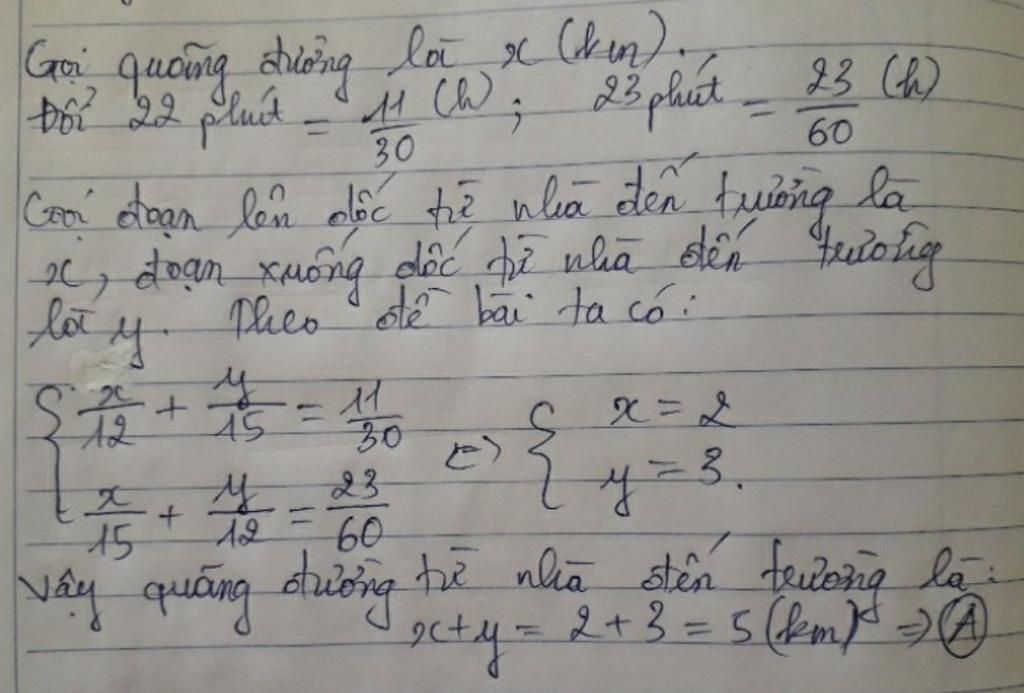 Gọi quãng đường là x (km).
Đổi 22 phút = 11/30 (h); 23 phút = 23/60 (h)
Gọi đoạn lên dốc từ nhà đến trường là
x, đoạn xuống dốc từ nhà đến trường
là y. Theo đề bài ta có:
{ x/12 + y/15 = 11/30 <=> { x = 2
x/15 + y/12 = 23/60 y = 3.
Vậy quãng đường từ nhà đến trường là:
x+y = 2+3 = 5 (km) => A